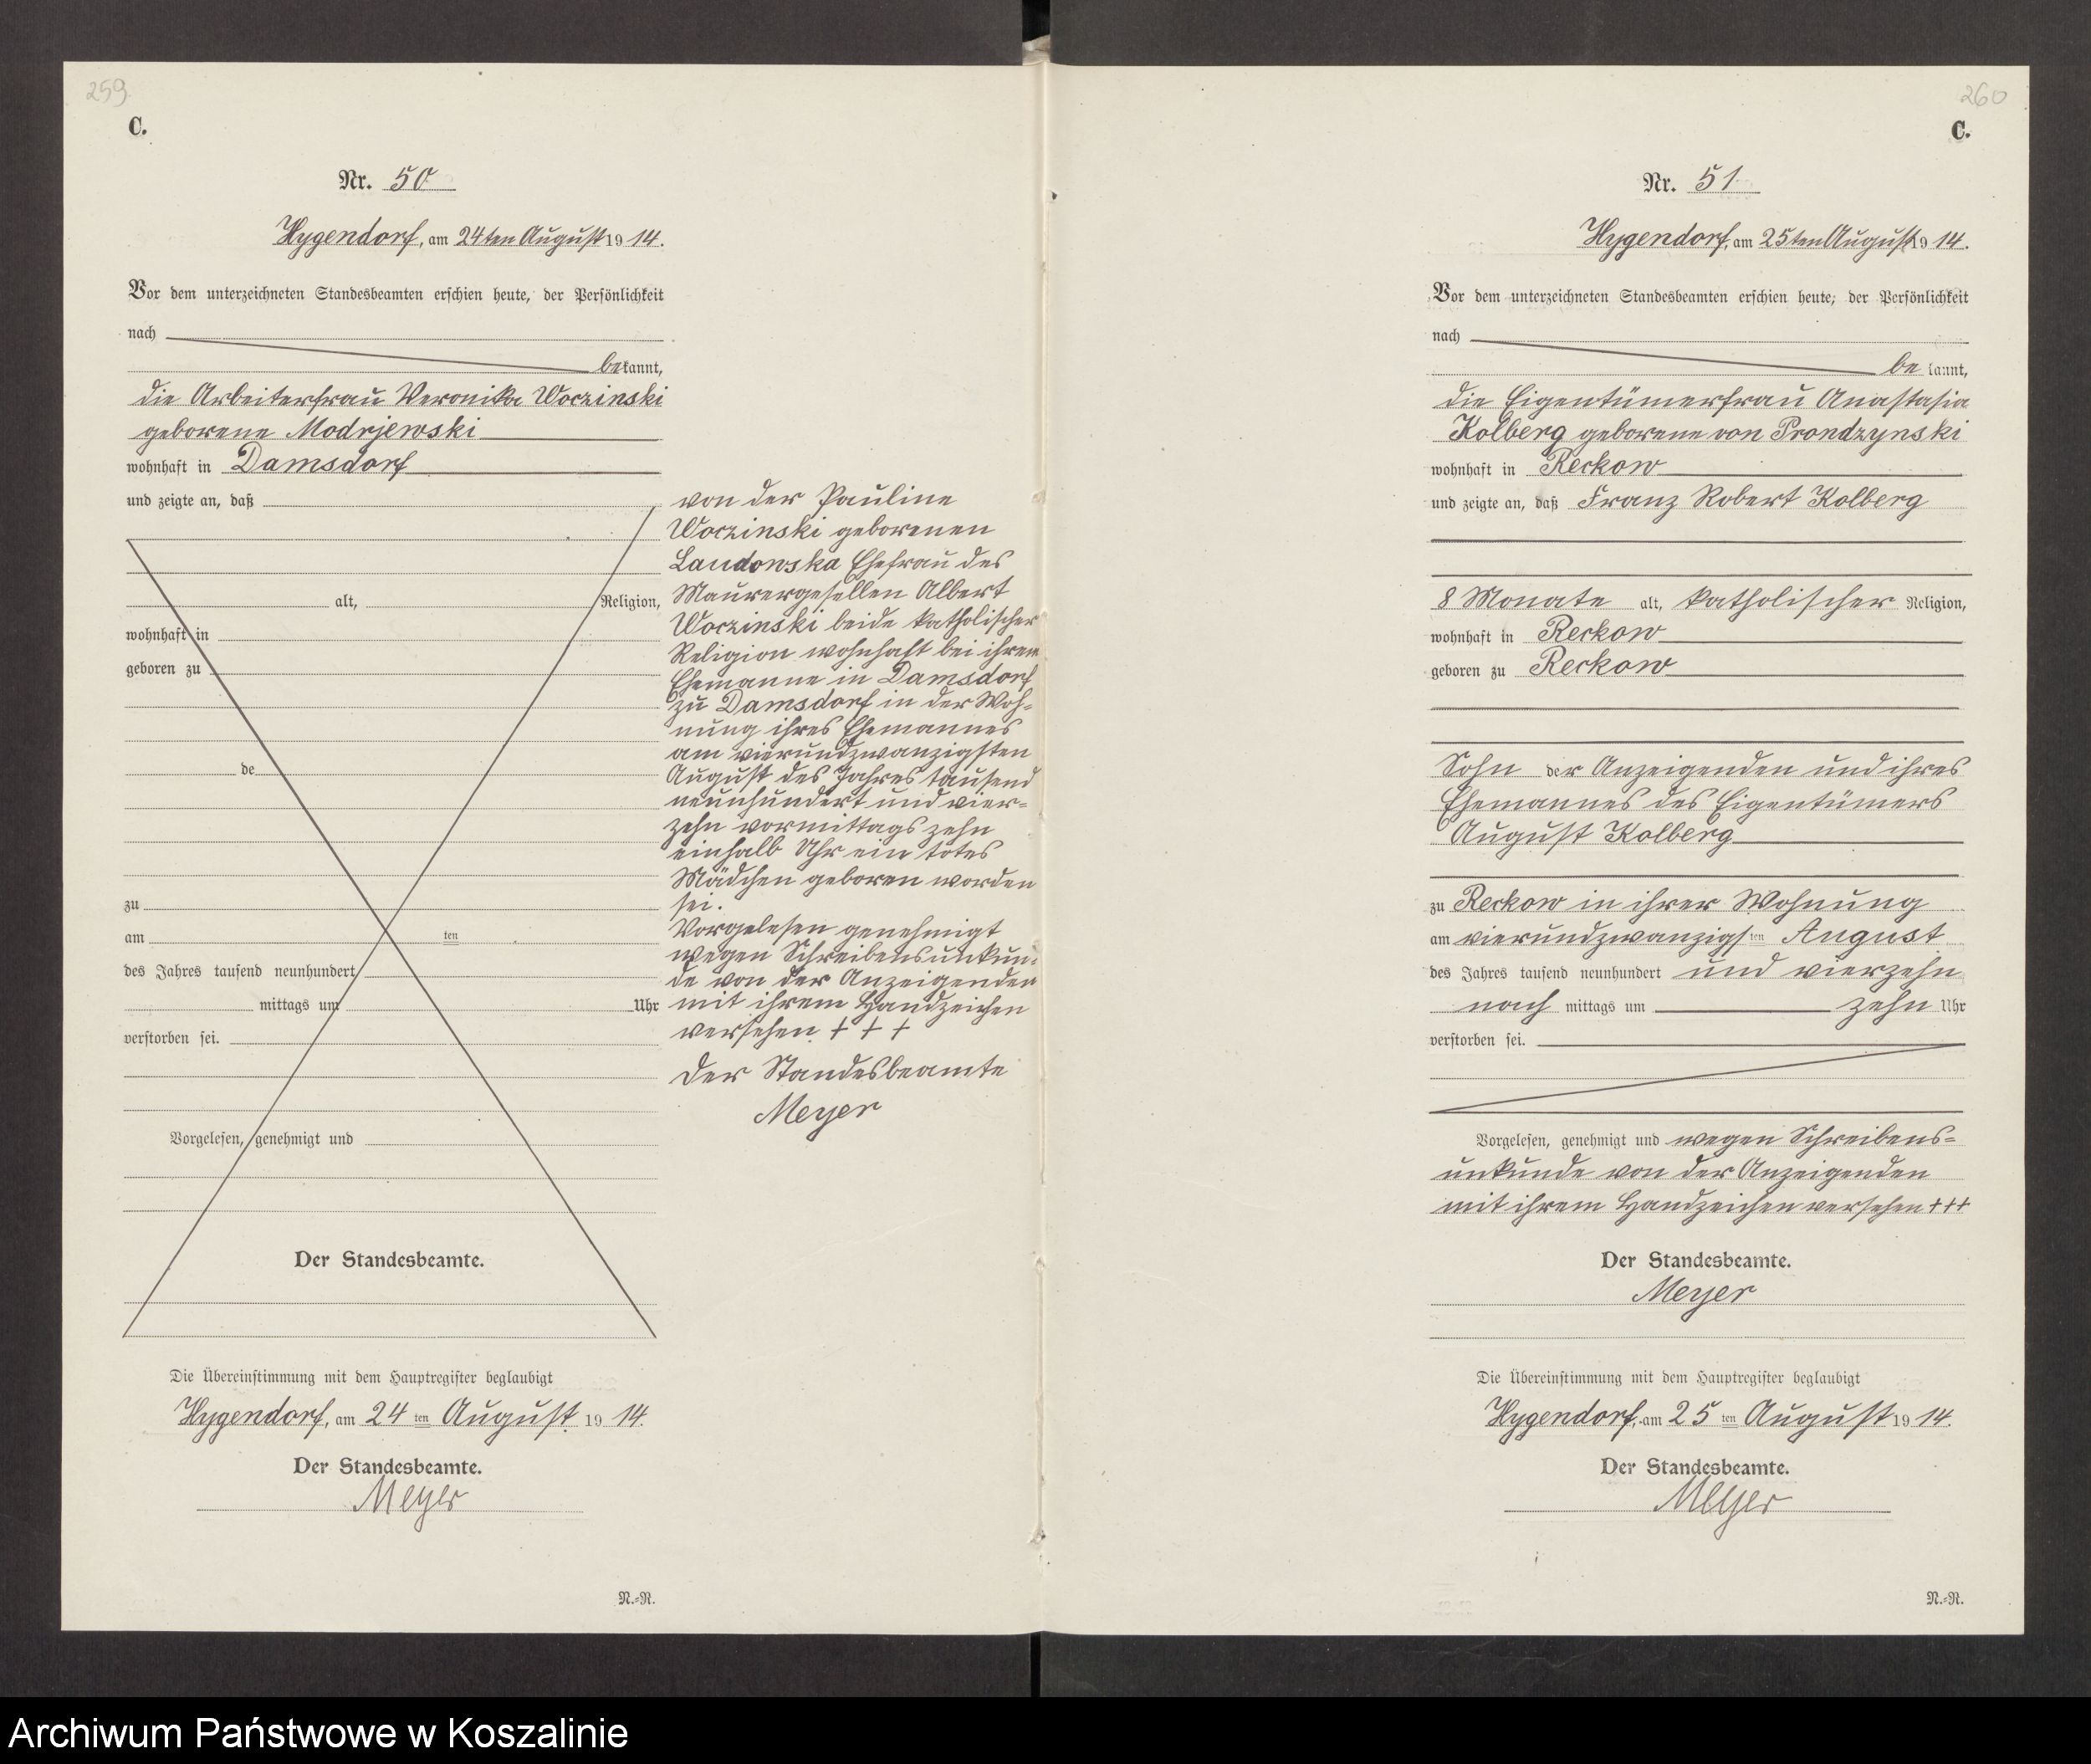 259
C.
Nr. 50
Hygendorf, am 24ten August 1914.
Vor dem unterzeichneten Standesbeamten erschien heute, der Persönlichkeit
nach
bekannt,
die Arbeiterfrau Veronika Woczinski
geborene Modrjewski
wohnhaft in Damsdorf
und zeigte an, daß
alt, Religion,
wohnhaft in
geboren zu
de
zu
am ten
des Jahres tausend neunhundert
mittags um Uhr
verstorben sei.
Vorgelesen, genehmigt und
Der Standesbeamte.
von der Pauline
Woczinski geborenen
Landowska Ehefrau des
Maurergesellen Albert
Woczinski beide katholischer
Religion wohnhaft bei ihrem
Ehemanne in Damsdorf
zu Damsdorf in der Woh-
nung ihres Ehemannes
am vierundzwanzigsten
August des Jahres tausend
neunhundert und vier-
zehn vormittags zehn
einhalb Uhr ein totes
Mädchen geboren worden
sei.
Vorgelesen genehmigt
wegen Schreibensunkun-
de von der Anzeigenden
mit ihrem Handzeichen
versehen + + +
Der Standesbeamte
Meyer
Die Übereinstimmung mit dem Hauptregister beglaubigt
Hygendorf, am 24 ten August 1914.
Der Standesbeamte.
Meyer
N.-R.
260
C.
Nr. 51
Hygendorf, am 25ten August 1914.
Vor dem unterzeichneten Standesbeamten erschien heute, der Persönlichkeit
nach
bekannt,
die Eigentümerfrau Anastasia
Kolberg geborene von Prondzynski
wohnhaft in Reckow
und zeigte an, daß Franz Robert Kolberg
8 Monate alt, katholischer Religion,
wohnhaft in Reckow
geboren zu Reckow
Sohn der Anzeigenden und ihres
Ehemannes des Eigentümers
August Kolberg
zu Reckow in ihrer Wohnung
am vierundzwanzigsten August
des Jahres tausend neunhundert und vierzehn
nach mittags um zehn Uhr
verstorben sei.
Vorgelesen, genehmigt und wegen Schreibens-
unkunde von der Anzeigenden
mit ihrem Handzeichen versehen +++
Der Standesbeamte.
Meyer
Die Übereinstimmung mit dem Hauptregister beglaubigt
Hygendorf, am 25 ten August 1914.
Der Standesbeamte.
Meyer
N.-R.
Archiwum Państwowe w Koszalinie